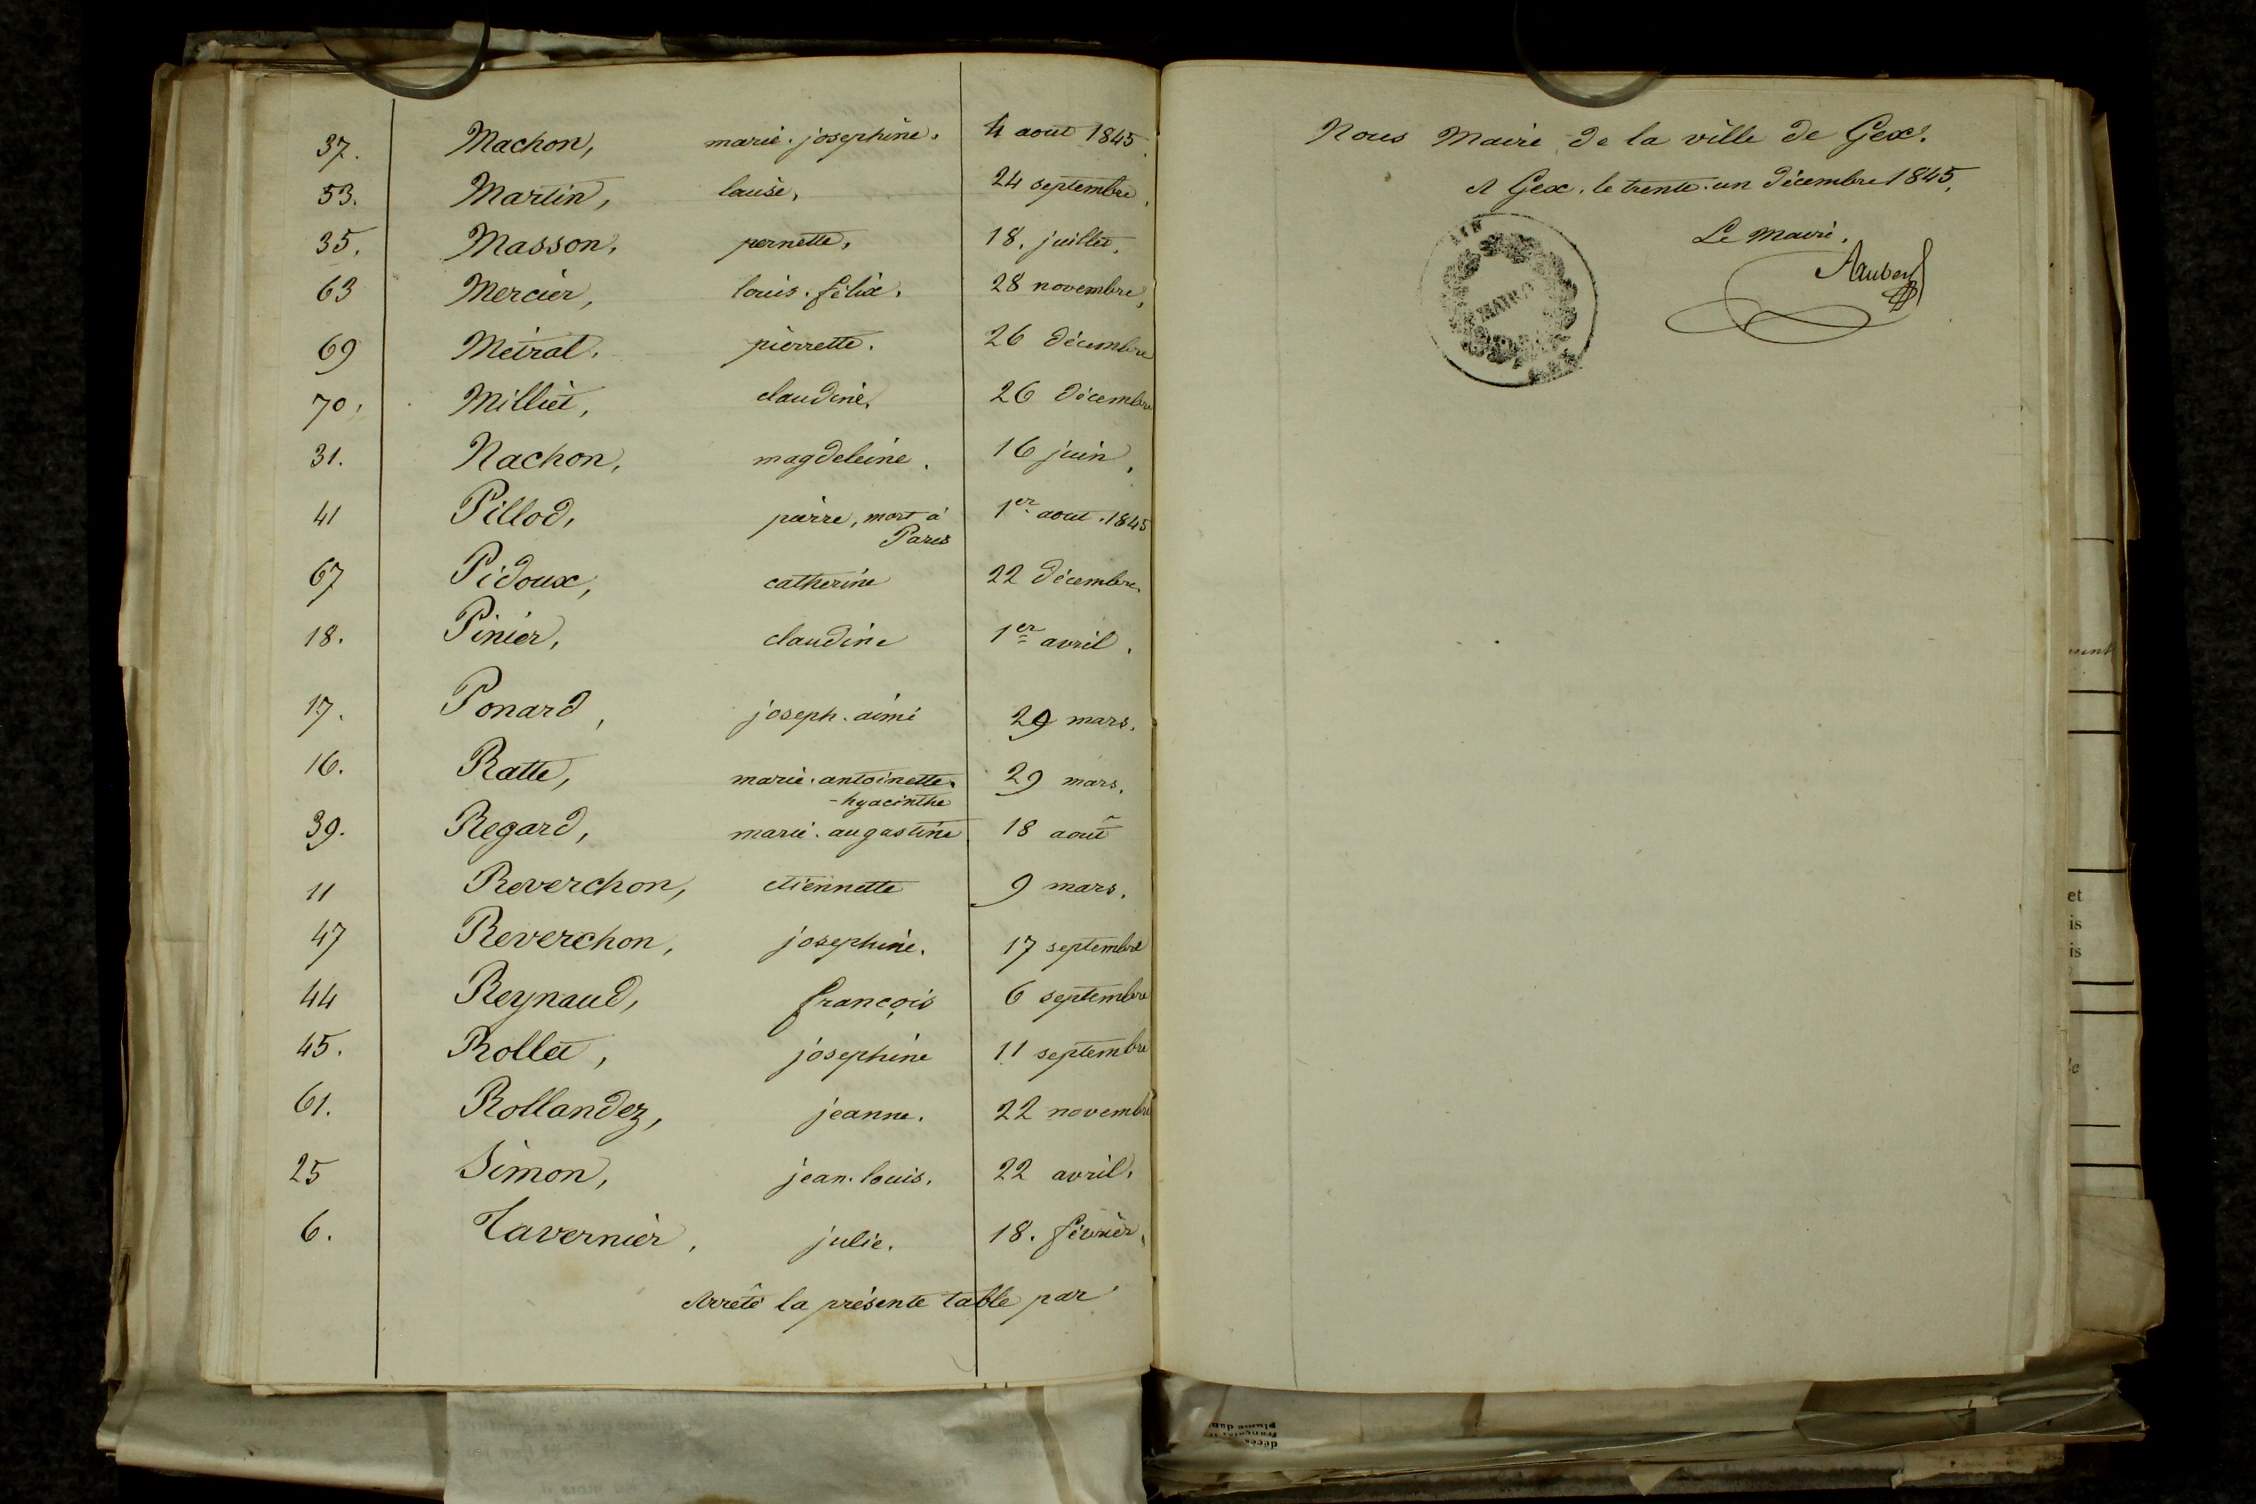 37. Machon, marie. josephine. 4 aout 1845.
53. Martin, louise, 24 septembre,
35. Masson, pernette, 18. juillet.
63 Mercier, louis. félix. 28 novembre,
69 Meiral. pierrette. 26 décembre
70. Milliet, claudine, 26 décembre
31. Nachon, magdeleine. 16 juin,
41 Pillod, pierre, mort à 1er aout. 1845
Paris
67 Pidoux, catherine 22 décembre.
18. Pinier, claudine 1er avril.
17. Ponard, joseph. aimé 29 mars.
16. Ratte, marie. antoinette. 29 mars.
-hyacinthe
39. Regard, marie. augustine 18 aout
11 Reverchon, etiennette 9 mars.
47 Reverchon, josephine. 17 septembre
44 Reynaud, françois 6 septembre
45. Rollet, josephine 11 septembre
61. Rollandez, jeanne. 22 novembre
25 Simon, jean. louis. 22 avril.
6. Tavernier, julie. 18. février,
Arrêté la présente table par
Nous Maire de la ville de Gex.
A Gex. le trente. un décembre 1845,
Le Maire.
AIN
MAIRIE
et
is
is